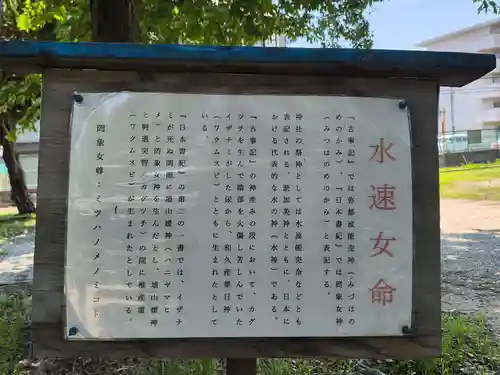 水速女命
『古事記』では弥都波能売神（みづはの
めのかみ）、『日本書紀』では罔象女神
（みつはのめのかみ）と表記する。
神社の祭神としては水波能売命などとも
表記される。淤加美神とともに、日本に
おける代表的な水の神（水神）である。
『古事記』の神産みの段において、カグ
ツチを生んで陰部を火傷し苦しんでいた
イザナミがした尿から、和久産巣日神
（ワクムスビ）とともに生まれたとして
いる。
『日本書紀』の第二の一書では、イザナ
ミが死ぬ間際に埴山媛神（ハニヤマヒ
メ）と罔象女神を生んだとし、埴山媛神
と軻遇突智（カグツチ）の間に稚産霊
（ワクムスビ）が生まれたとしている。
罔象女尊：ミツハノメノミコト